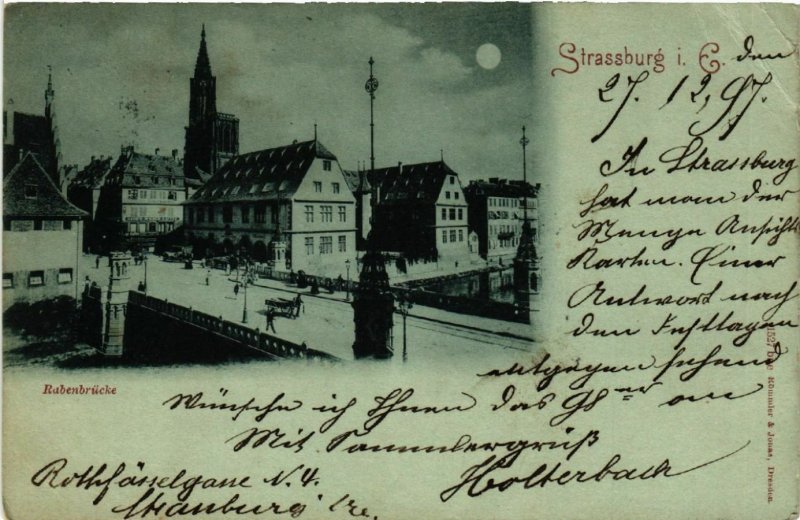 Strassburg i. E. den
27. 12. 97.
In Strassburg
hat man der
Menge Ansichts
Karten. Einer
Antwort nach
den Festtagen
entgegen sehend
Wünsche ich Ihnen das
Mit Sammlergruß
Holterbach
Rothfässelgasse N. 4.
Strassburg
Rabenbrücke
Römmler & Jonas, Dresden.